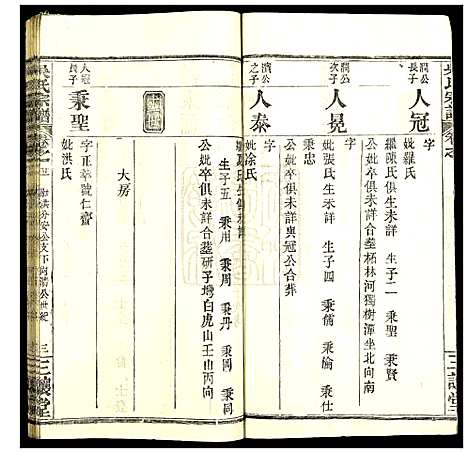 吳氏宗譜
卷之
三讓堂
潤公長子
人冠
字
妣羅氏
繼陳氏俱生未詳 生子二 秉聖 秉賢
公妣卒俱未詳合葬柘林河獨樹潭坐北向南
潤公次子
人晃
字
妣張氏生未詳 生子四 秉儒 秉倫 秉
秉忠
公妣卒俱未詳與冠公合葬
濱公之子
人泰
字
妣涂氏
生子五 秉用 秉周 秉丹 秉岡 秉同
公妣卒俱未詳合葬研子塆白虎山壬山丙向
大房
人冠長子
秉聖
字正華號仁齋
妣洪氏
吳氏宗譜
卷之
分安公支下
公世紀
三
三讓堂